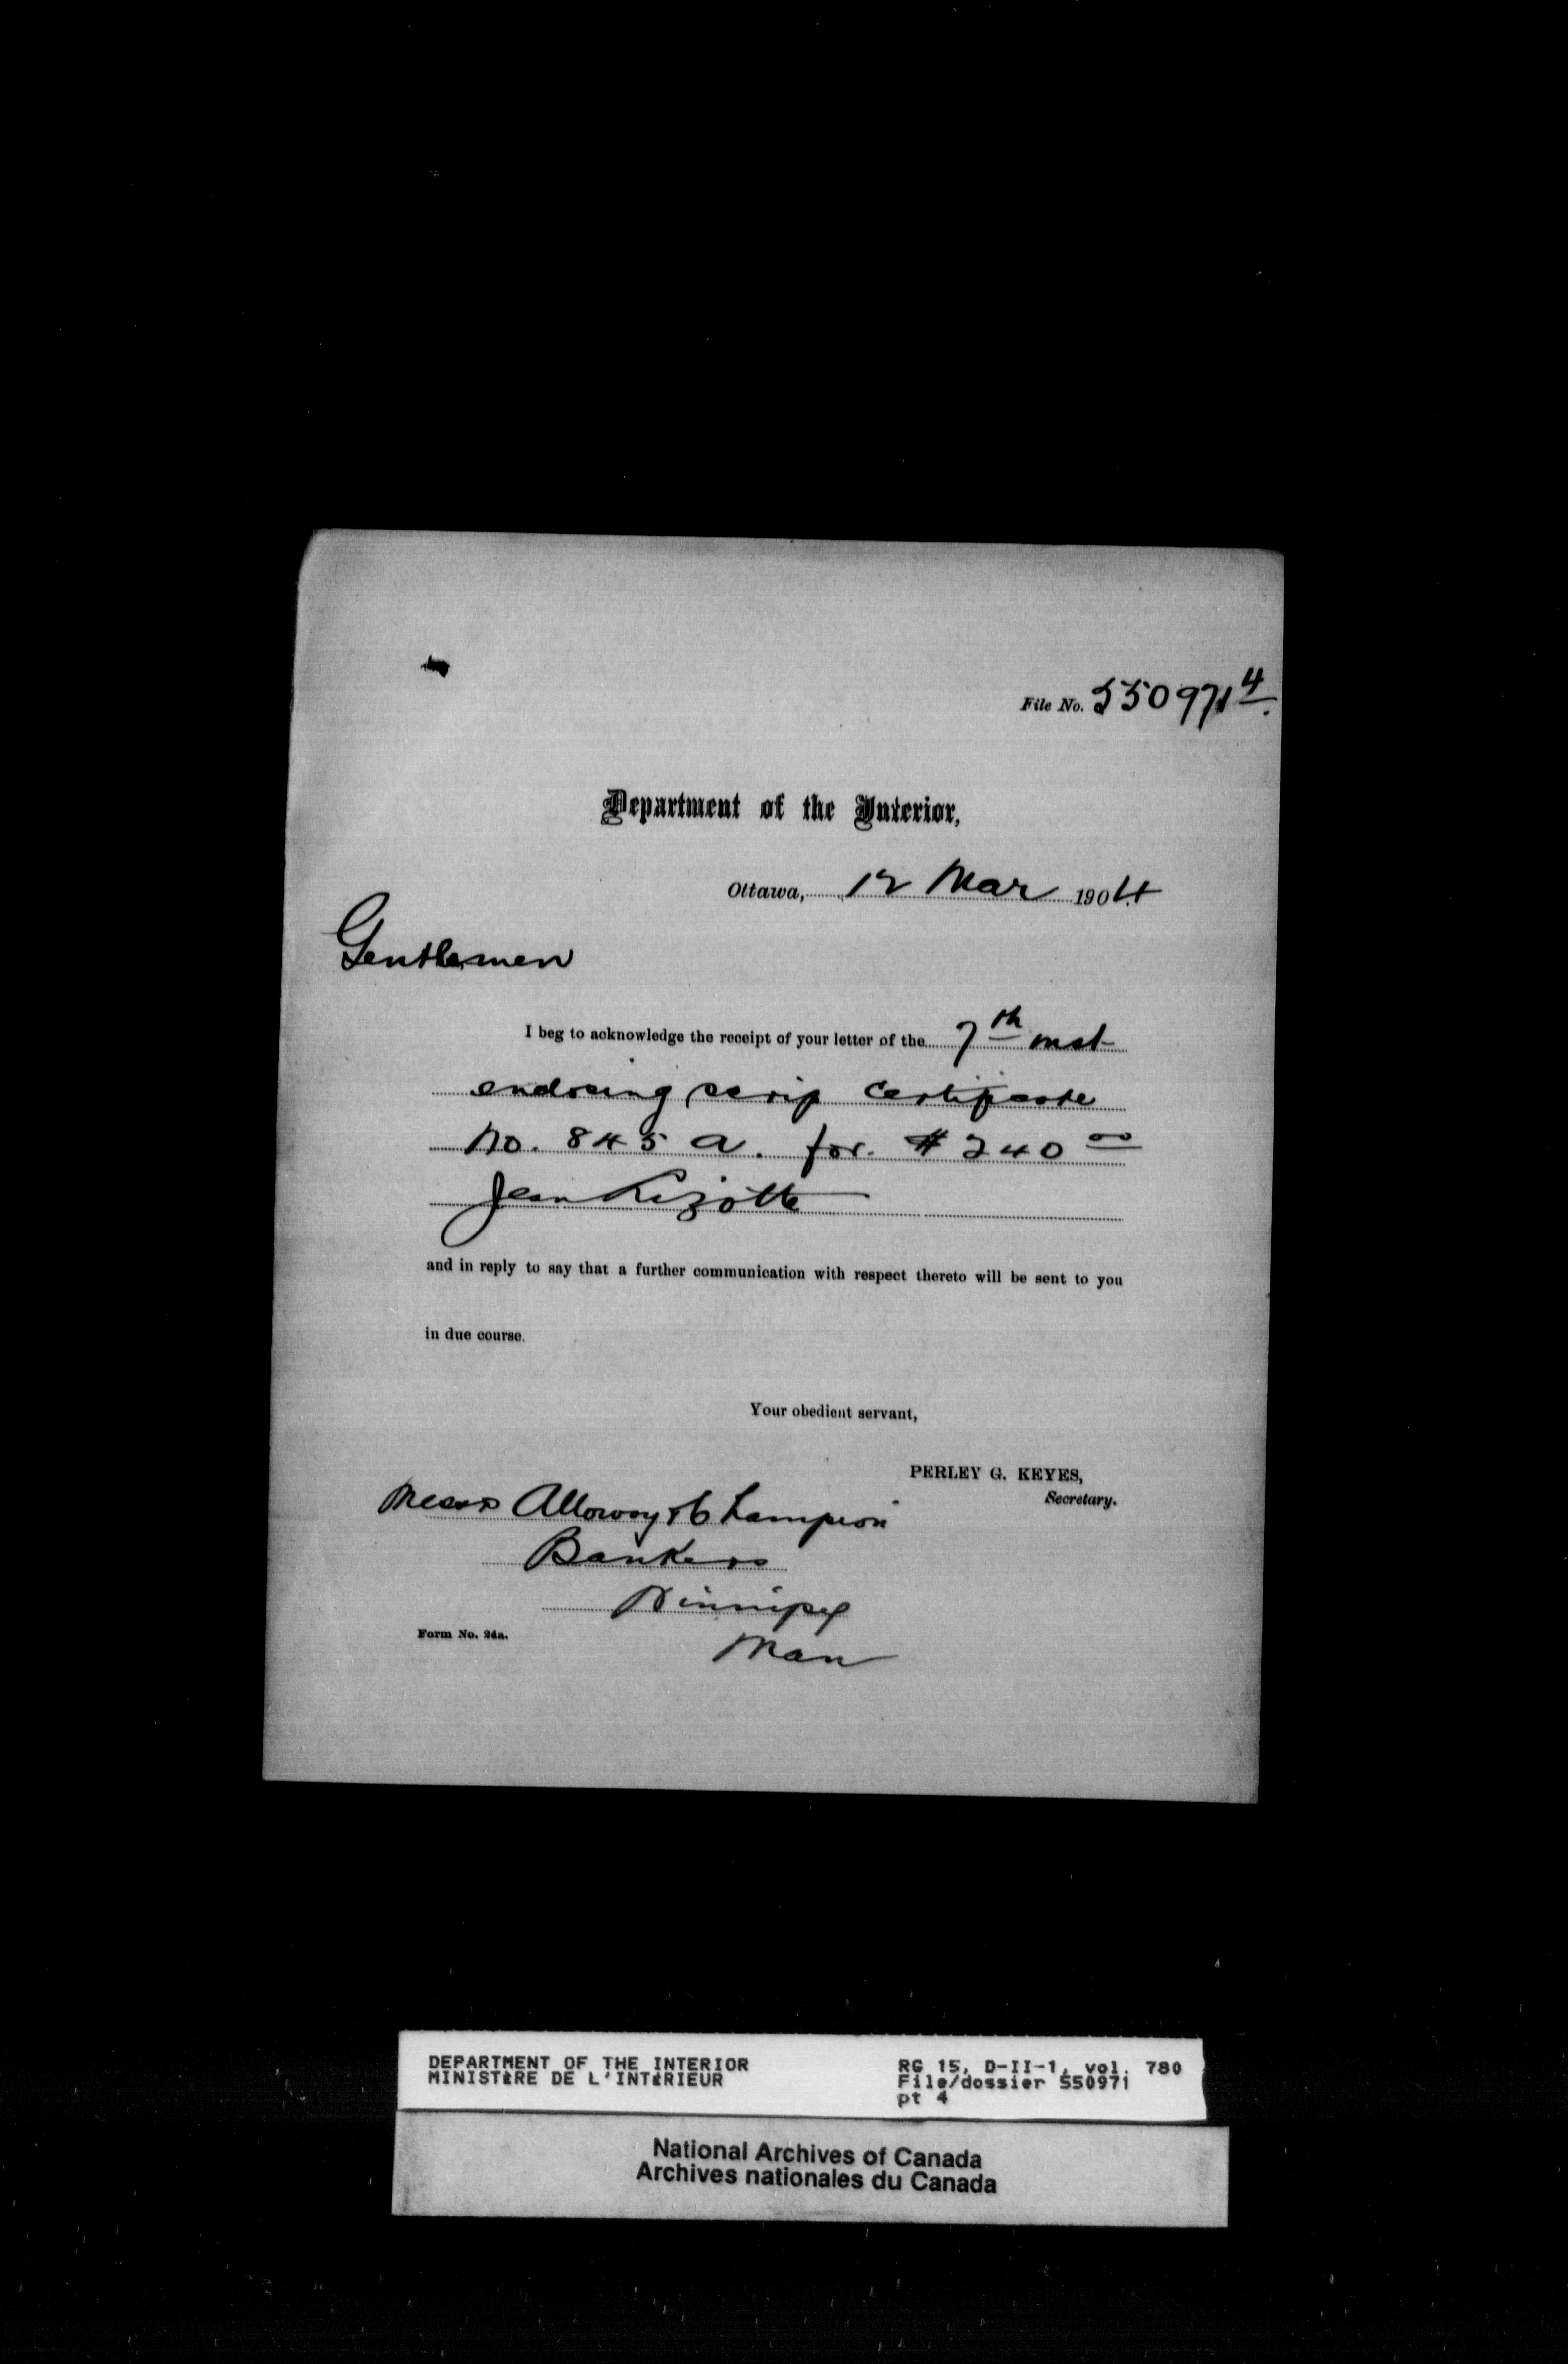 File No. 550971 4
Department of the Interior,
Ottawa, 12 Mar 1904
Gentlemen
I beg to acknowledge the receipt of your letter of the 7th inst
enclosing scrip certificate
No. 845 a. for $240 00
Jean Lizotte
and in reply to say that a further communication with respect thereto will be sent to you
in due course.
Your obedient servant,
PERLEY G. KEYES,
Secretary.
Messrs Alloway & Champion
Bankers
Winnipeg
Man
Form No. 24a.
DEPARTMENT OF THE INTERIOR
MINISTÈRE DE L'INTÉRIEUR
RG 15, D-II-1, vol. 780
File/dossier 550971
pt 4
National Archives of Canada
Archives nationales du Canada